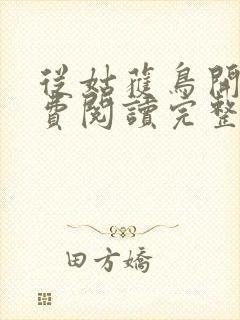 從姑獲鳥開
費閱讀完整
田方嬌